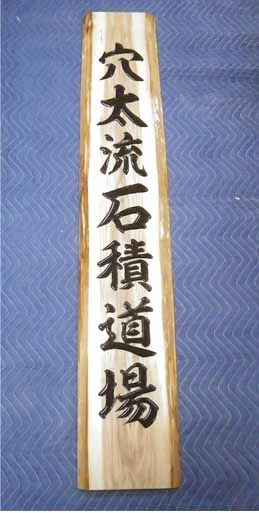 穴太流石積道場